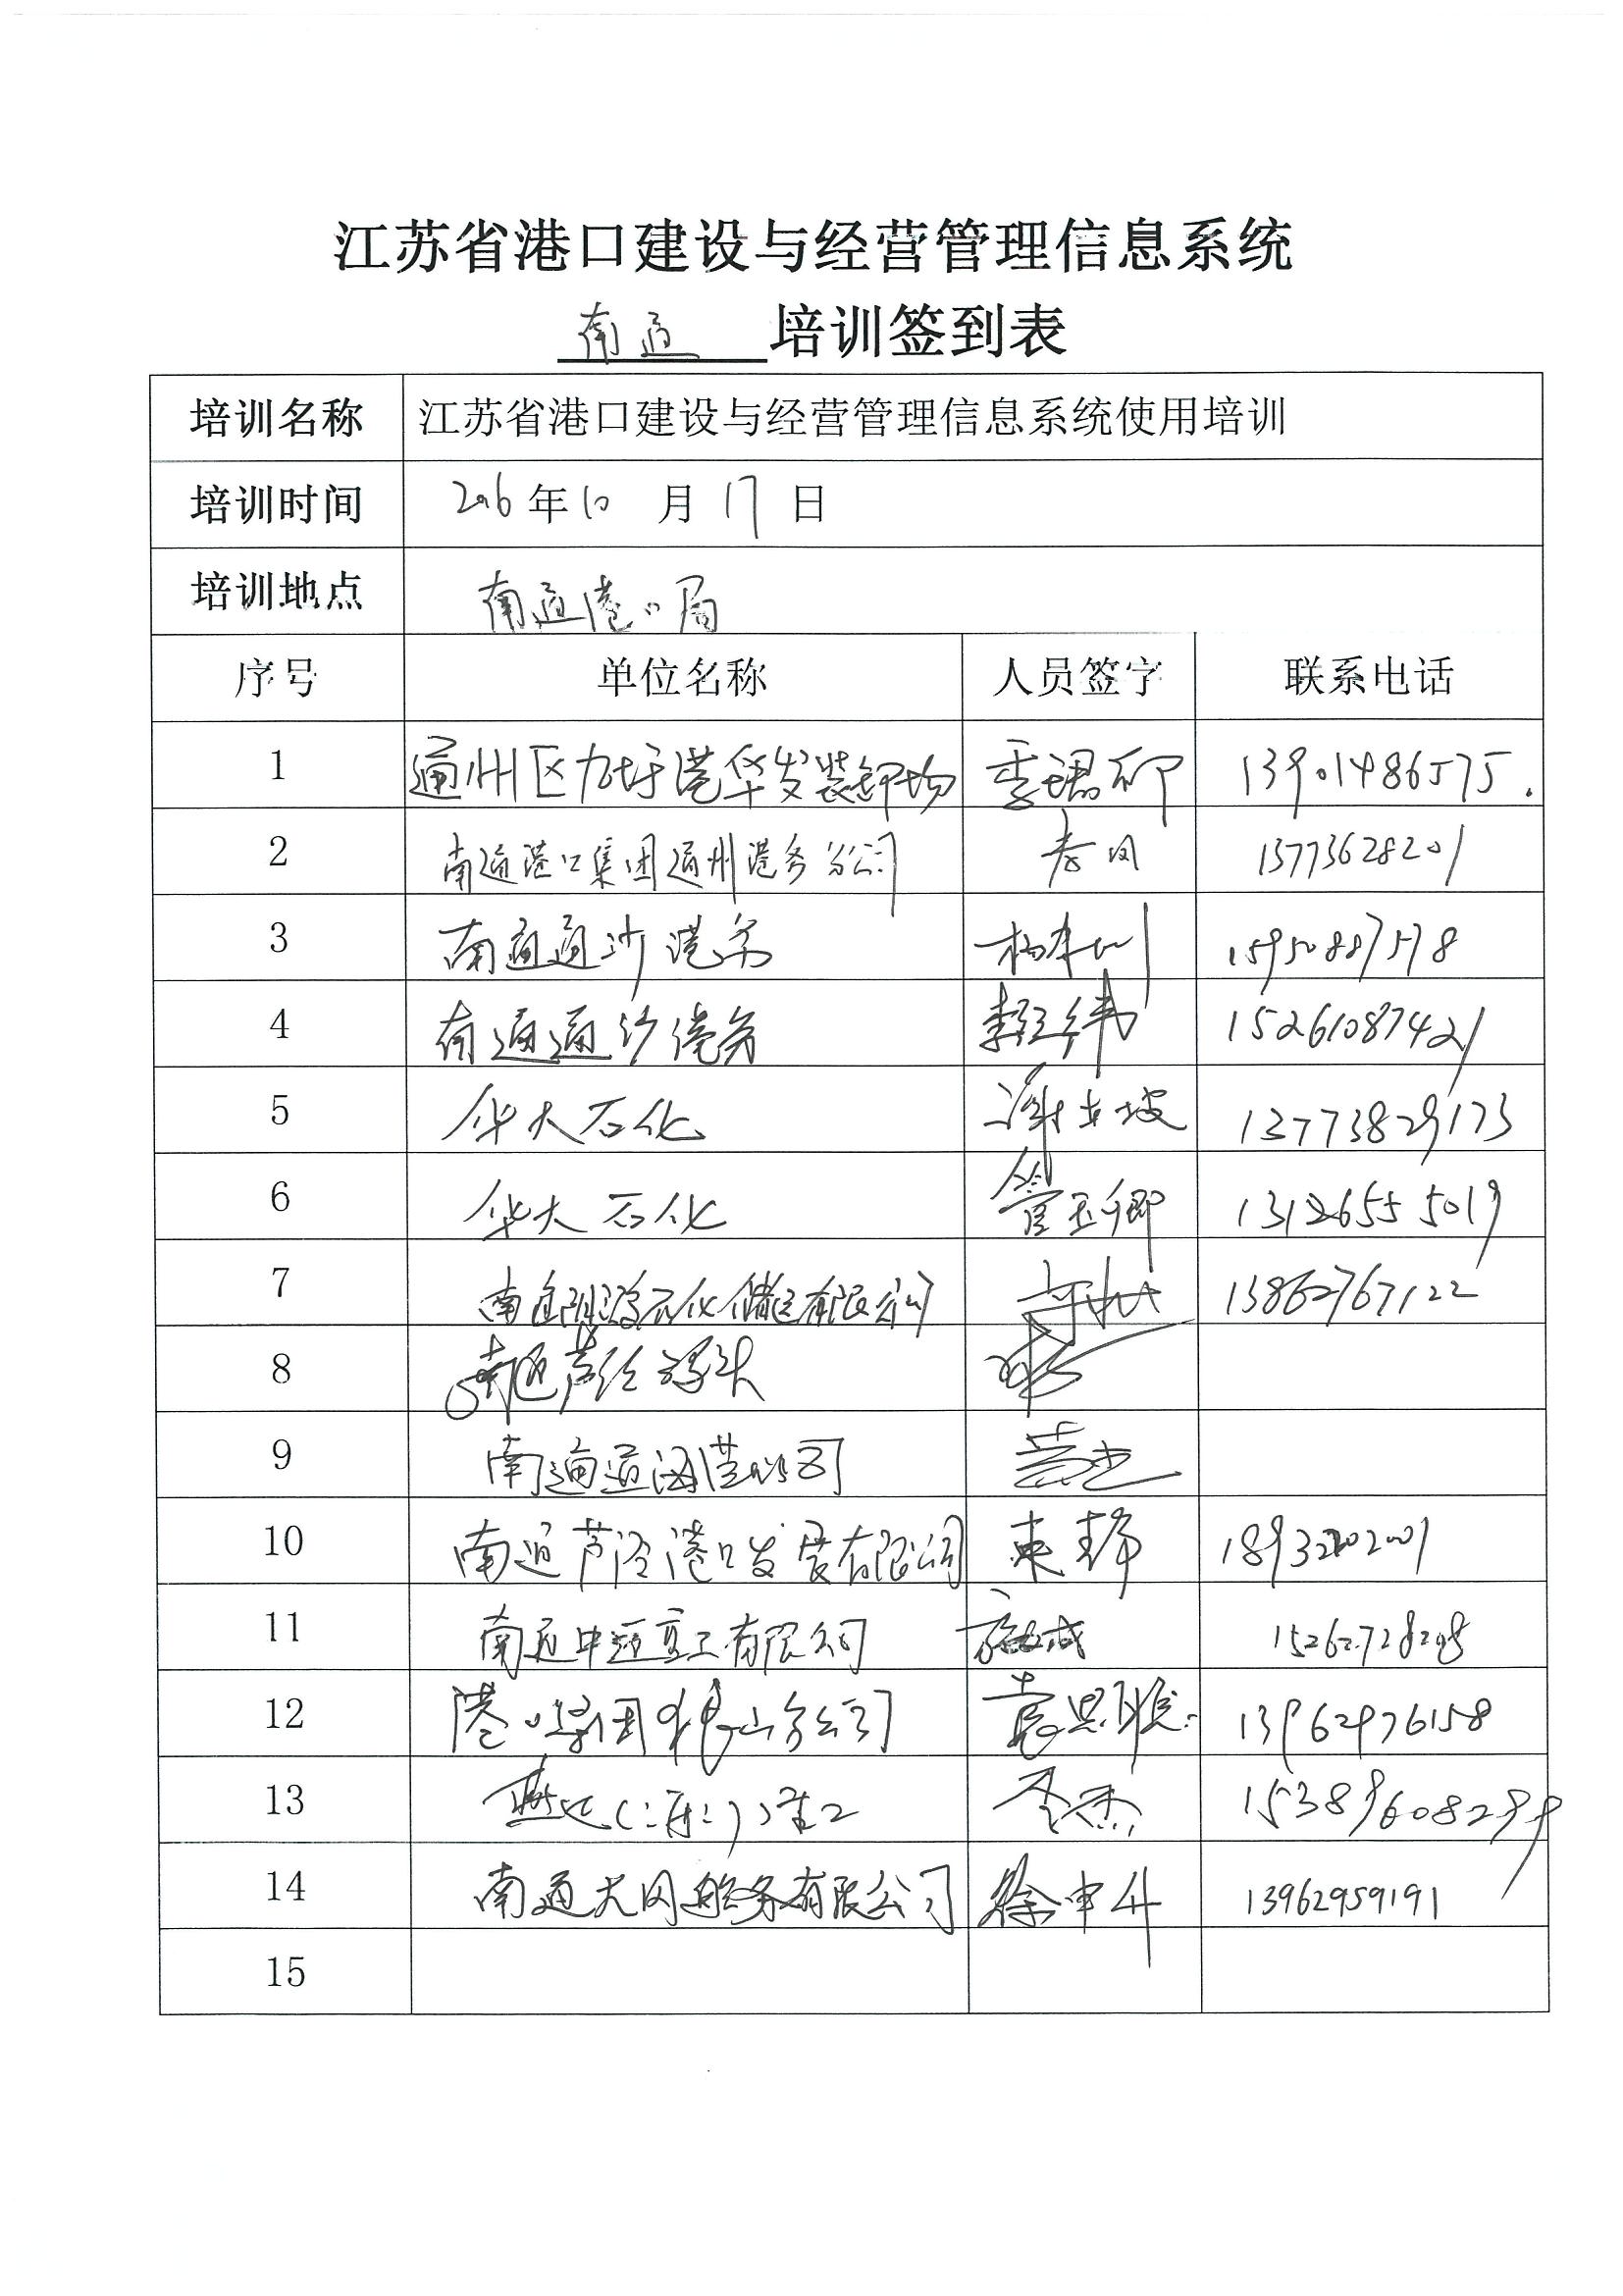 江苏省港口建设与经营管理信息系统
南通 培训签到表
培训名称 江苏省港口建设与经营管理信息系统使用培训
培训时间 2016年10月17日
培训地点 南通港口局
序号 单位名称 人员签字 联系电话
1 通州区九圩港华发装卸场 季珺 13901486575.
2 南通港口集团通州港务分公司 13773628201
3 南通通沙港务 15950887578
4 南通通沙港务 李经纬 15261087421
5 华大石化 谢 13773829173
6 华大石化 管玉卿 13126555019
7 南通阳鸿石化储运有限公司 13862767122
8 南通芦泾码头
9 南通通海港
10 南通芦泾港口发展有限公司
11 南通中远重工有限公司 15262728208
12 港口集团狼山分公司 袁思 13962976158
13 李杰
14 南通大风船务有限公司 徐申升 13962959191
15